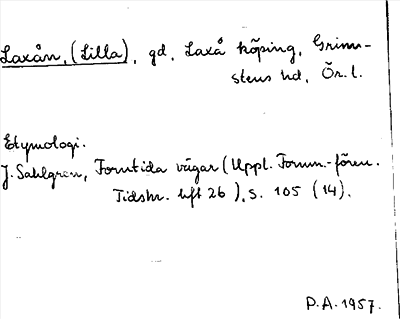 Laxån, (Lilla), gd, Laxå köping, Grim-
stens hd, Ör. l.
Etymologi.
J. Sahlgren, Forntida vägar (Uppl. Fornm.-fören.
Tidskr. hft 26), s. 105 (14).
P.A. 1957.